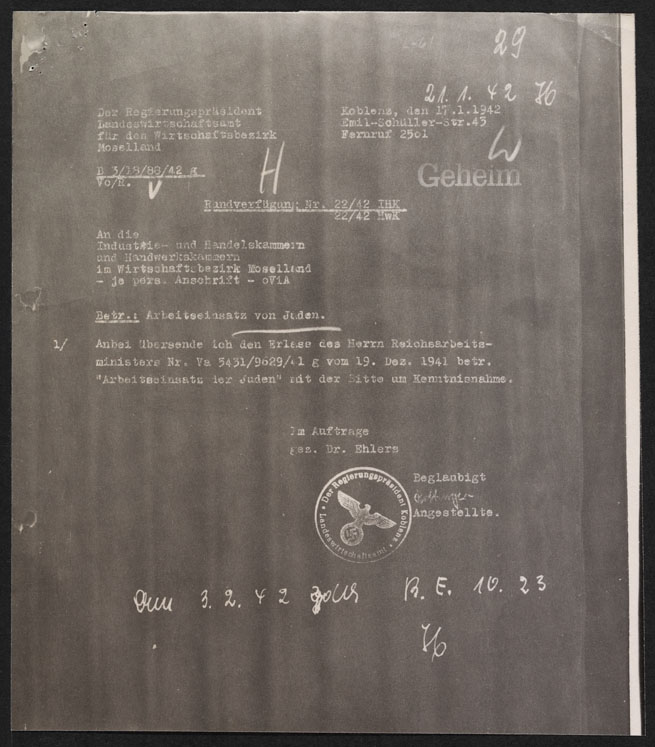 29
21.1.42
Der Regierungspräsident
Landeswirtschaftsamt
für den Wirtschaftsbezirk
Moselland
Koblenz, den 17.1.1942
Emil-Schüller-Str.43
Fernruf 2501
D 3/18/88/42 g
Vo/H.
H
Geheim
Rundverfügung Nr. 22/42 IHK
22/42 HwK
An die
Industrie- und Handelskammern
und Handwerkskammern
im Wirtschaftsbezirk Moselland
- je pers. Anschrift - oViA
Betr.: Arbeitseinsatz von Juden.
1/ Anbei übersende ich den Erlass des Herrn Reichsarbeits-
ministers Nr. Va 5431/9629/41 g vom 19. Dez. 1941 betr.
"Arbeitseinsatz der Juden" mit der Bitte um Kenntnisnahme.
Im Auftrage
gez. Dr. Ehlers
Beglaubigt
Angestellte.
Der Regierungspräsident Koblenz
Landeswirtschaftsamt
3.2.42 R. E. 10. 23